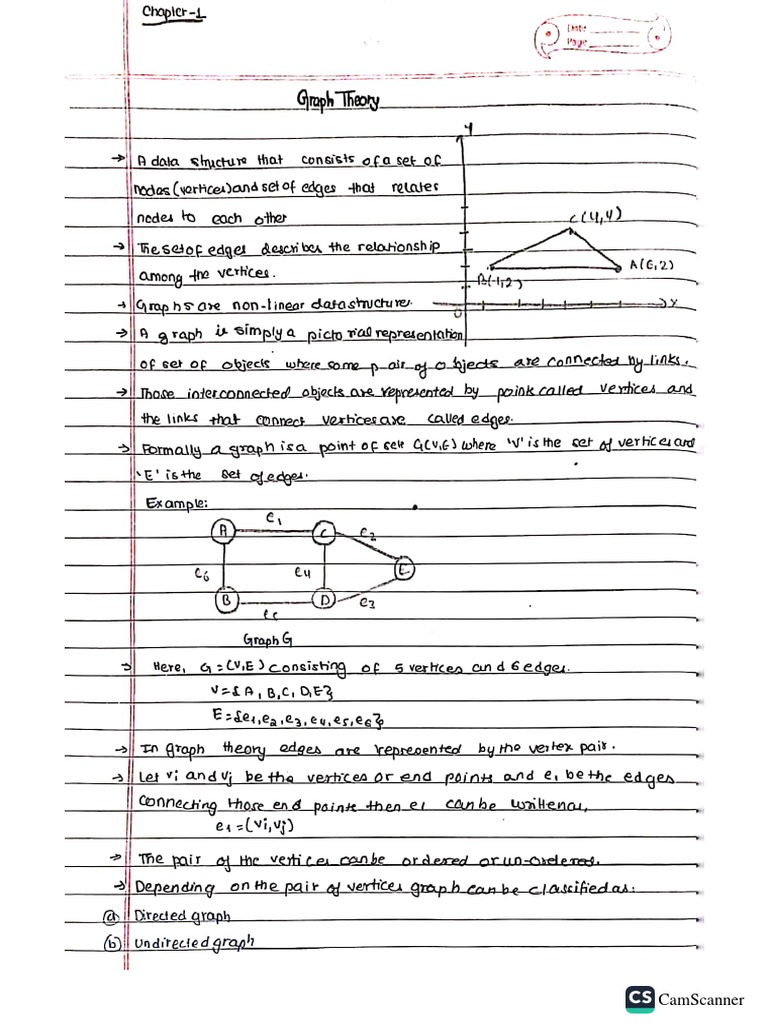 Chapter-1
Date
Page
Graph Theory
→ A data structure that consists of a set of
nodes (vertices) and set of edges that relates
nodes to each other
→ The set of edges describes the relationship
among the vertices.
→ Graphs are non-linear datastructure.
→ A graph is simply a pictorial representation
of set of objects where some pair of objects are connected by links.
→ Those interconnected objects are represented by point called vertices and
the links that connect vertices are called edges.
→ Formally a graph is a point of sets G(V,E) where 'V' is the set of vertices and
'E' is the set of edges.
Y
C(4,4)
A(6,2)
B(-1,2)
O
X
Example:
A e1 C e2
e6 e4 E
B D e3
e5
Graph G
→ Here, G=(V,E) consisting of 5 vertices and 6 edges.
V={A,B,C,D,E}
E={e1,e2,e3,e4,e5,e6}
→ In graph theory edges are represented by the vertex pair.
→ Let vi and vj be the vertices or end points and e1 be the edges
connecting those end points then e1 can be written as,
e1=(vi,vj)
→ The pair of the vertices can be ordered or un-ordered.
→ Depending on the pair of vertices graph can be classified as:
(a) Directed graph
(b) Undirected graph
CS CamScanner